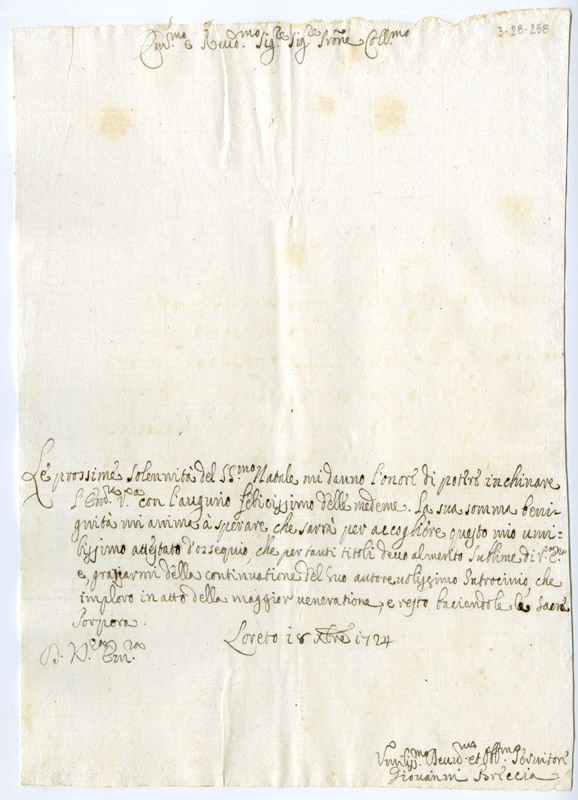 3-28-258
Em.mo e Reud.mo Sig.re Sig.re Prone Coll.mo
Le prossime solennità del SS.mo Natale mi danno l'onore di potere inchinare
l'Em.za V.ra con l'augurio felicissimo delle medeme. La sua somma beni-
gnità mi anima à sperare che sarrà per accogliere questo mio umi-
lissimo attestato d'ossequio, che per tanti titoli deuo al merito sublime di V.
e, graziarmi della continuatione del suo autoreuolissimo Patrocinio che
imploro in atto della maggior veneratione, e resto baciandole la sacra
Porpora.
D. V. Em.za
Loreto 18 Xbre 1724
Vmiliss.mo Deuot.mo et Obb.mo Seruitore
Giouanni Breccia